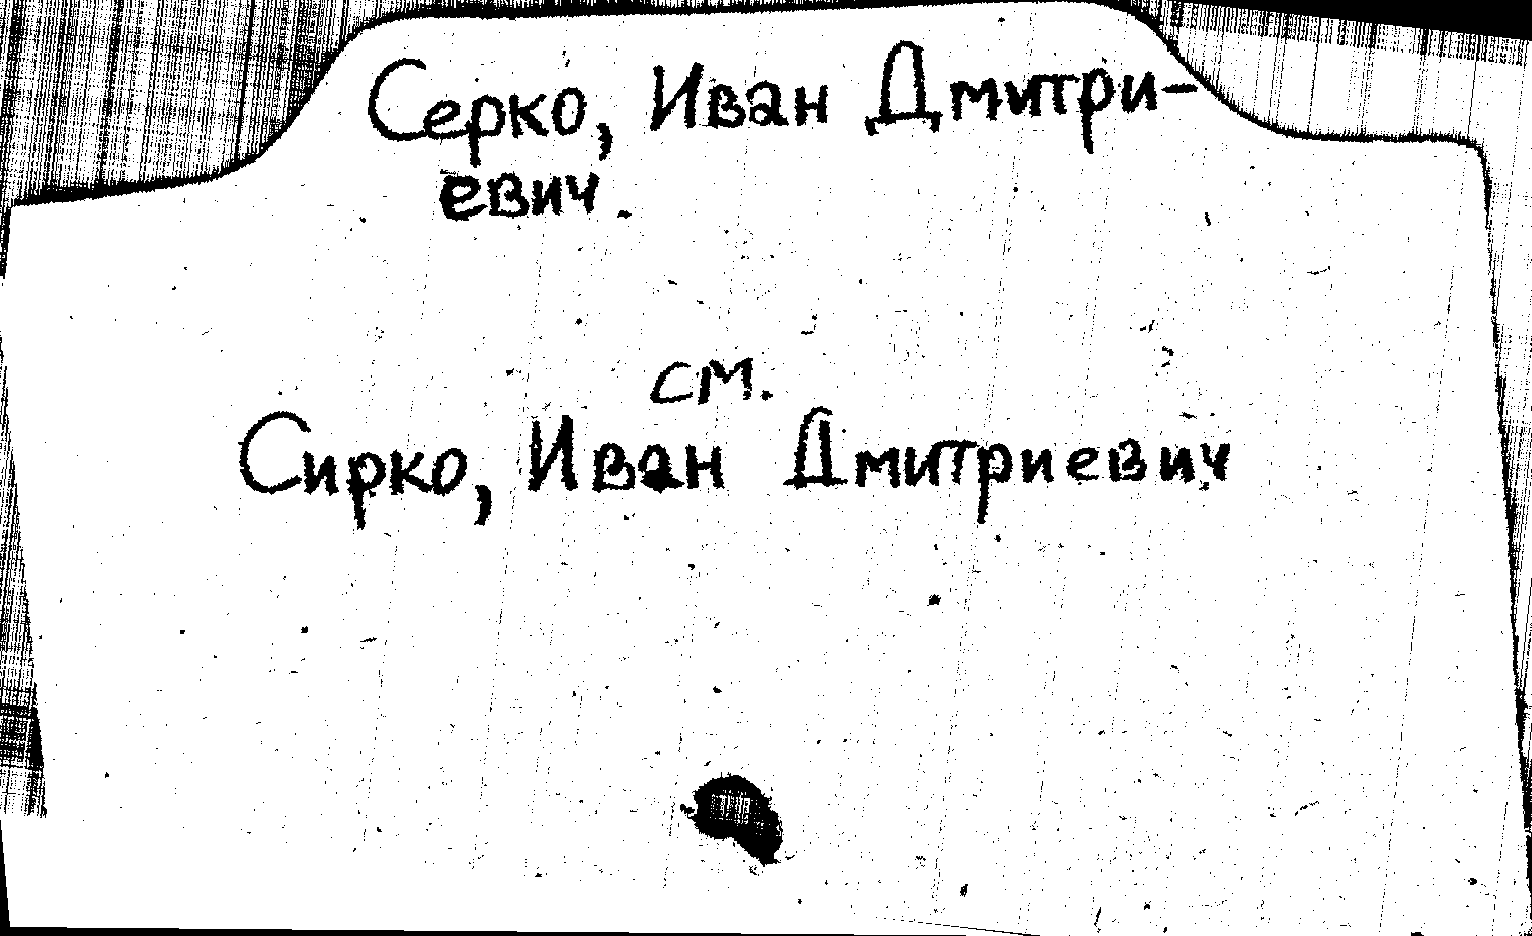 Серко, Иван Дмитри-
евич.
см.
Сирко, Иван Дмитриевич